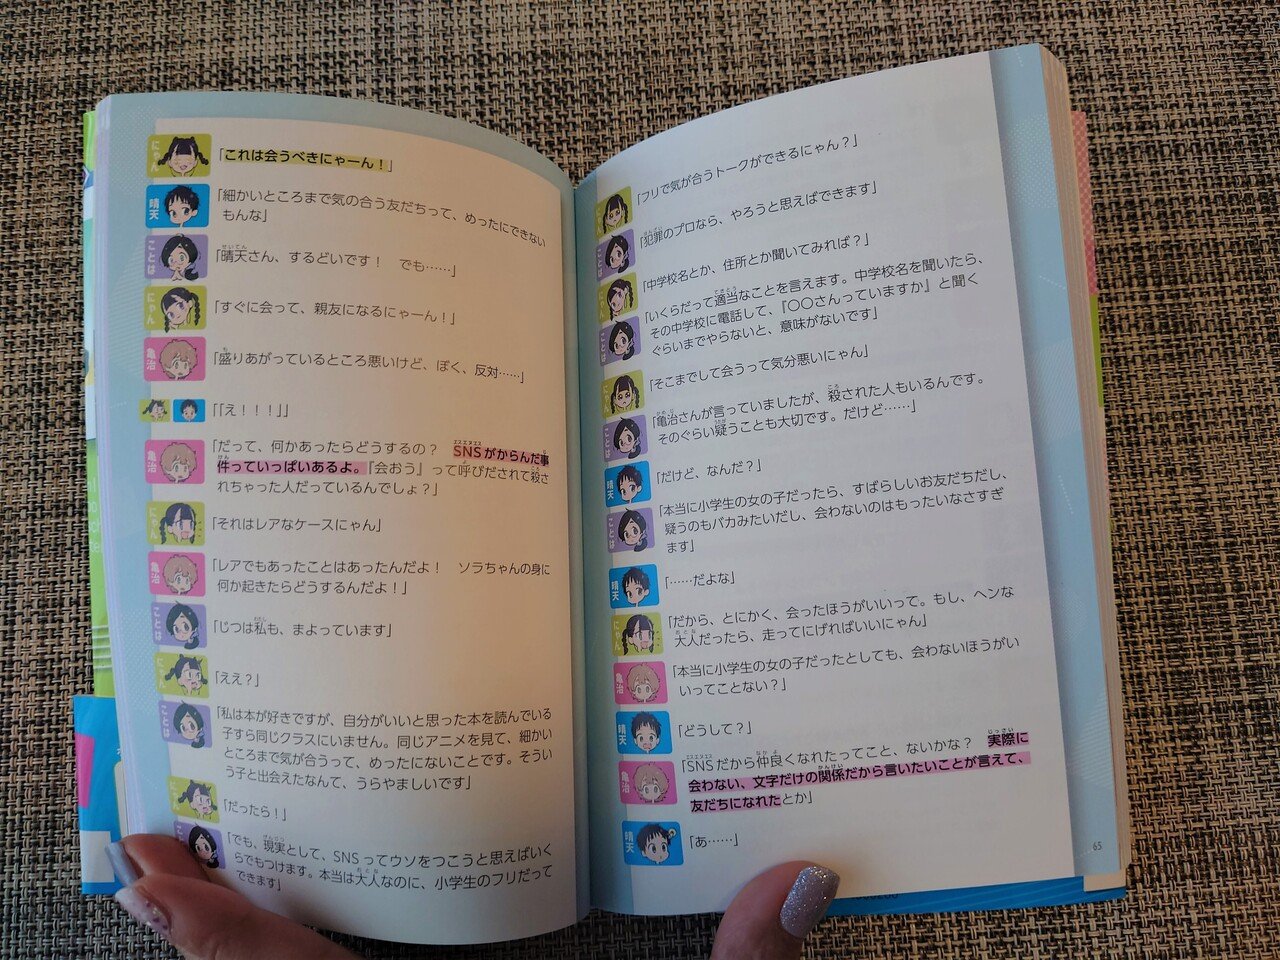 にゃん
「これは会うべきにゃーん！」
晴天
「細かいところまで気の合う友だちって、めったにできない
もんな」
ことは
「晴天さん、するどいです！　でも……」
にゃん
「すぐに会って、親友になるにゃーん！」
亀治
「盛りあがっているところ悪いけど、ぼく、反対……」
「「え！！！」」
亀治
「だって、何かあったらどうするの？　SNSがからんだ事
件っていっぱいあるよ。『会おう』って呼びだされて殺さ
れちゃった人だっているんでしょ？」
にゃん
「それはレアなケースにゃん」
亀治
「レアでもあったことはあったんだよ！　ソラちゃんの身に
何か起きたらどうするんだよ！」
ことは
「じつは私も、まよっています」
にゃん
「ええ？」
ことは
「私は本が好きですが、自分がいいと思った本を読んでいる
子すら同じクラスにいません。同じアニメを見て、細かい
ところまで気が合うって、めったにないことです。そうい
う子と出会えたなんて、うらやましいです」
にゃん
「だったら！」
ことは
「でも、現実として、SNSってウソをつこうと思えばいく
らでもつけます。本当は大人なのに、小学生のフリだって
できます」
にゃん
「フリで気が合うトークができるにゃん？」
ことは
「犯罪のプロなら、やろうと思えばできます」
にゃん
「中学校名とか、住所とか聞いてみれば？」
ことは
「いくらだって適当なことを言えます。中学校名を聞いたら、
その中学校に電話して、『〇〇さんっていますか』と聞く
ぐらいまでやらないと、意味がないです」
にゃん
「そこまでして会うって気分悪いにゃん」
ことは
「亀治さんが言っていましたが、殺された人もいるんです。
そのぐらい疑うことも大切です。だけど……」
晴天
「だけど、なんだ？」
ことは
「本当に小学生の女の子だったら、すばらしいお友だちだし、
疑うのもバカみたいだし、会わないのはもったいなさすぎ
ます」
晴天
「……だよな」
にゃん
「だから、とにかく、会ったほうがいいって。もし、ヘンな
大人だったら、走ってにげればいいにゃん」
亀治
「本当に小学生の女の子だったとしても、会わないほうがい
いってことない？」
晴天
「どうして？」
亀治
「SNSだから仲良くなれたってこと、ないかな？　実際に
会わない、文字だけの関係だから言いたいことが言えて、
友だちになれたとか」
晴天
「あ……」
65